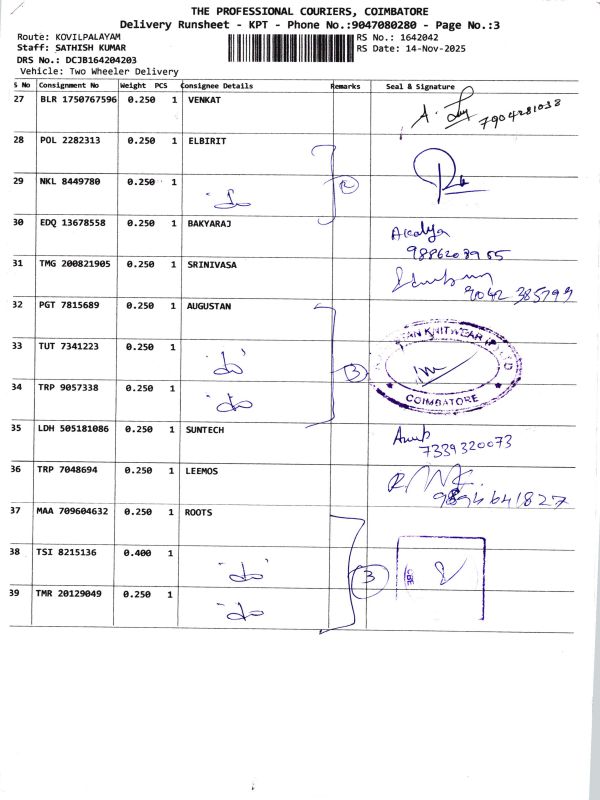 THE PROFESSIONAL COURIERS, COIMBATORE
Delivery Runsheet - KPT - Phone No.:9047080280 - Page No.:3
Route: KOVILPALAYAM
RS No.: 1642042
Staff: SATHISH KUMAR
RS Date: 14-Nov-2025
DRS No.: DCJB164204203
Vehicle: Two Wheeler Delivery
S No Consignment No Weight PCS Consignee Details Remarks Seal & Signature
27 BLR 1750767596 0.250 1 VENKAT
7904281038
28 POL 2282313 0.250 1 ELBIRIT
29 NKL 8449780 0.250 1 "do"
30 EDQ 13678558 0.250 1 BAKYARAJ Akalya
31 TMG 200821905 0.250 1 SRINIVASA
9042 385799
32 PGT 7815689 0.250 1 AUGUSTAN
33 TUT 7341223 0.250 1 "do" 3
KNITWEAR (P) LTD
34 TRP 9057338 0.250 1 "do"
COIMBATORE
35 LDH 505181086 0.250 1 SUNTECH
7339320073
36 TRP 7048694 0.250 1 LEEMOS
37 MAA 709604632 0.250 1 ROOTS
38 TSI 8215136 0.400 1 "do" 3
CBE
39 TMR 20129049 0.250 1 "do"